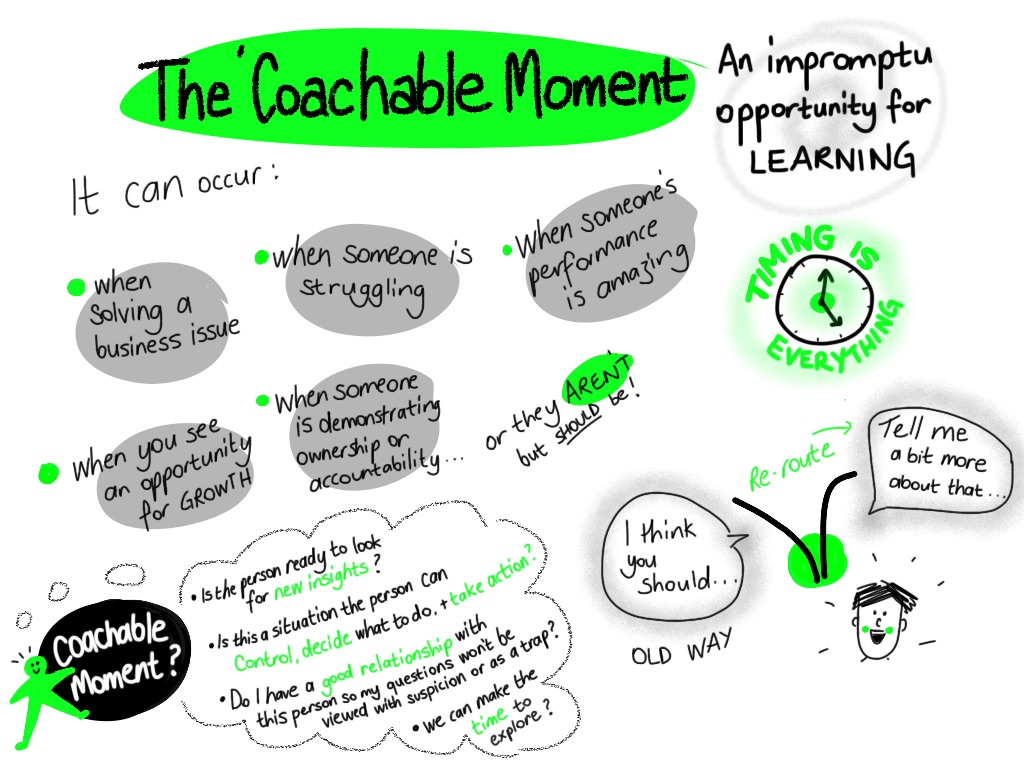 The 'Coachable Moment
An impromptu
opportunity for
LEARNING
It can occur:
• when
solving a
business issue
• when someone is
struggling
• When someone's
performance
is amazing
• When you see
an opportunity
for GROWTH
• When someone
is demonstrating
ownership or
accountability...
or they AREN'T
but SHOULD be!
TIMING IS
EVERYTHING
Re-route
Tell me
a bit more
about that...
I think
you
should...
OLD WAY
Coachable
Moment?
• Is the person ready to look
for new insights?
• Is this a situation the person can
Control, decide what to do, + take action?
• Do I have a good relationship with
this person so my questions won't be
viewed with suspicion or as a trap?
• We can make the
time to
explore?